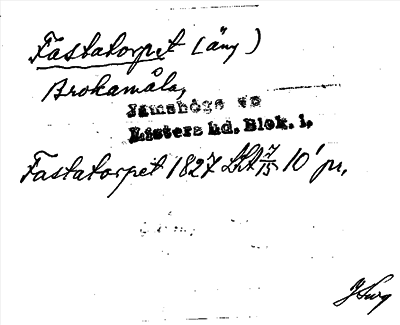 Fastatorpet (äng)
Brokamåla,
Jämshögs sn
Listers hd. Blek. l.
Fastatorpet 1827 Lskt 7/15 10' pr.